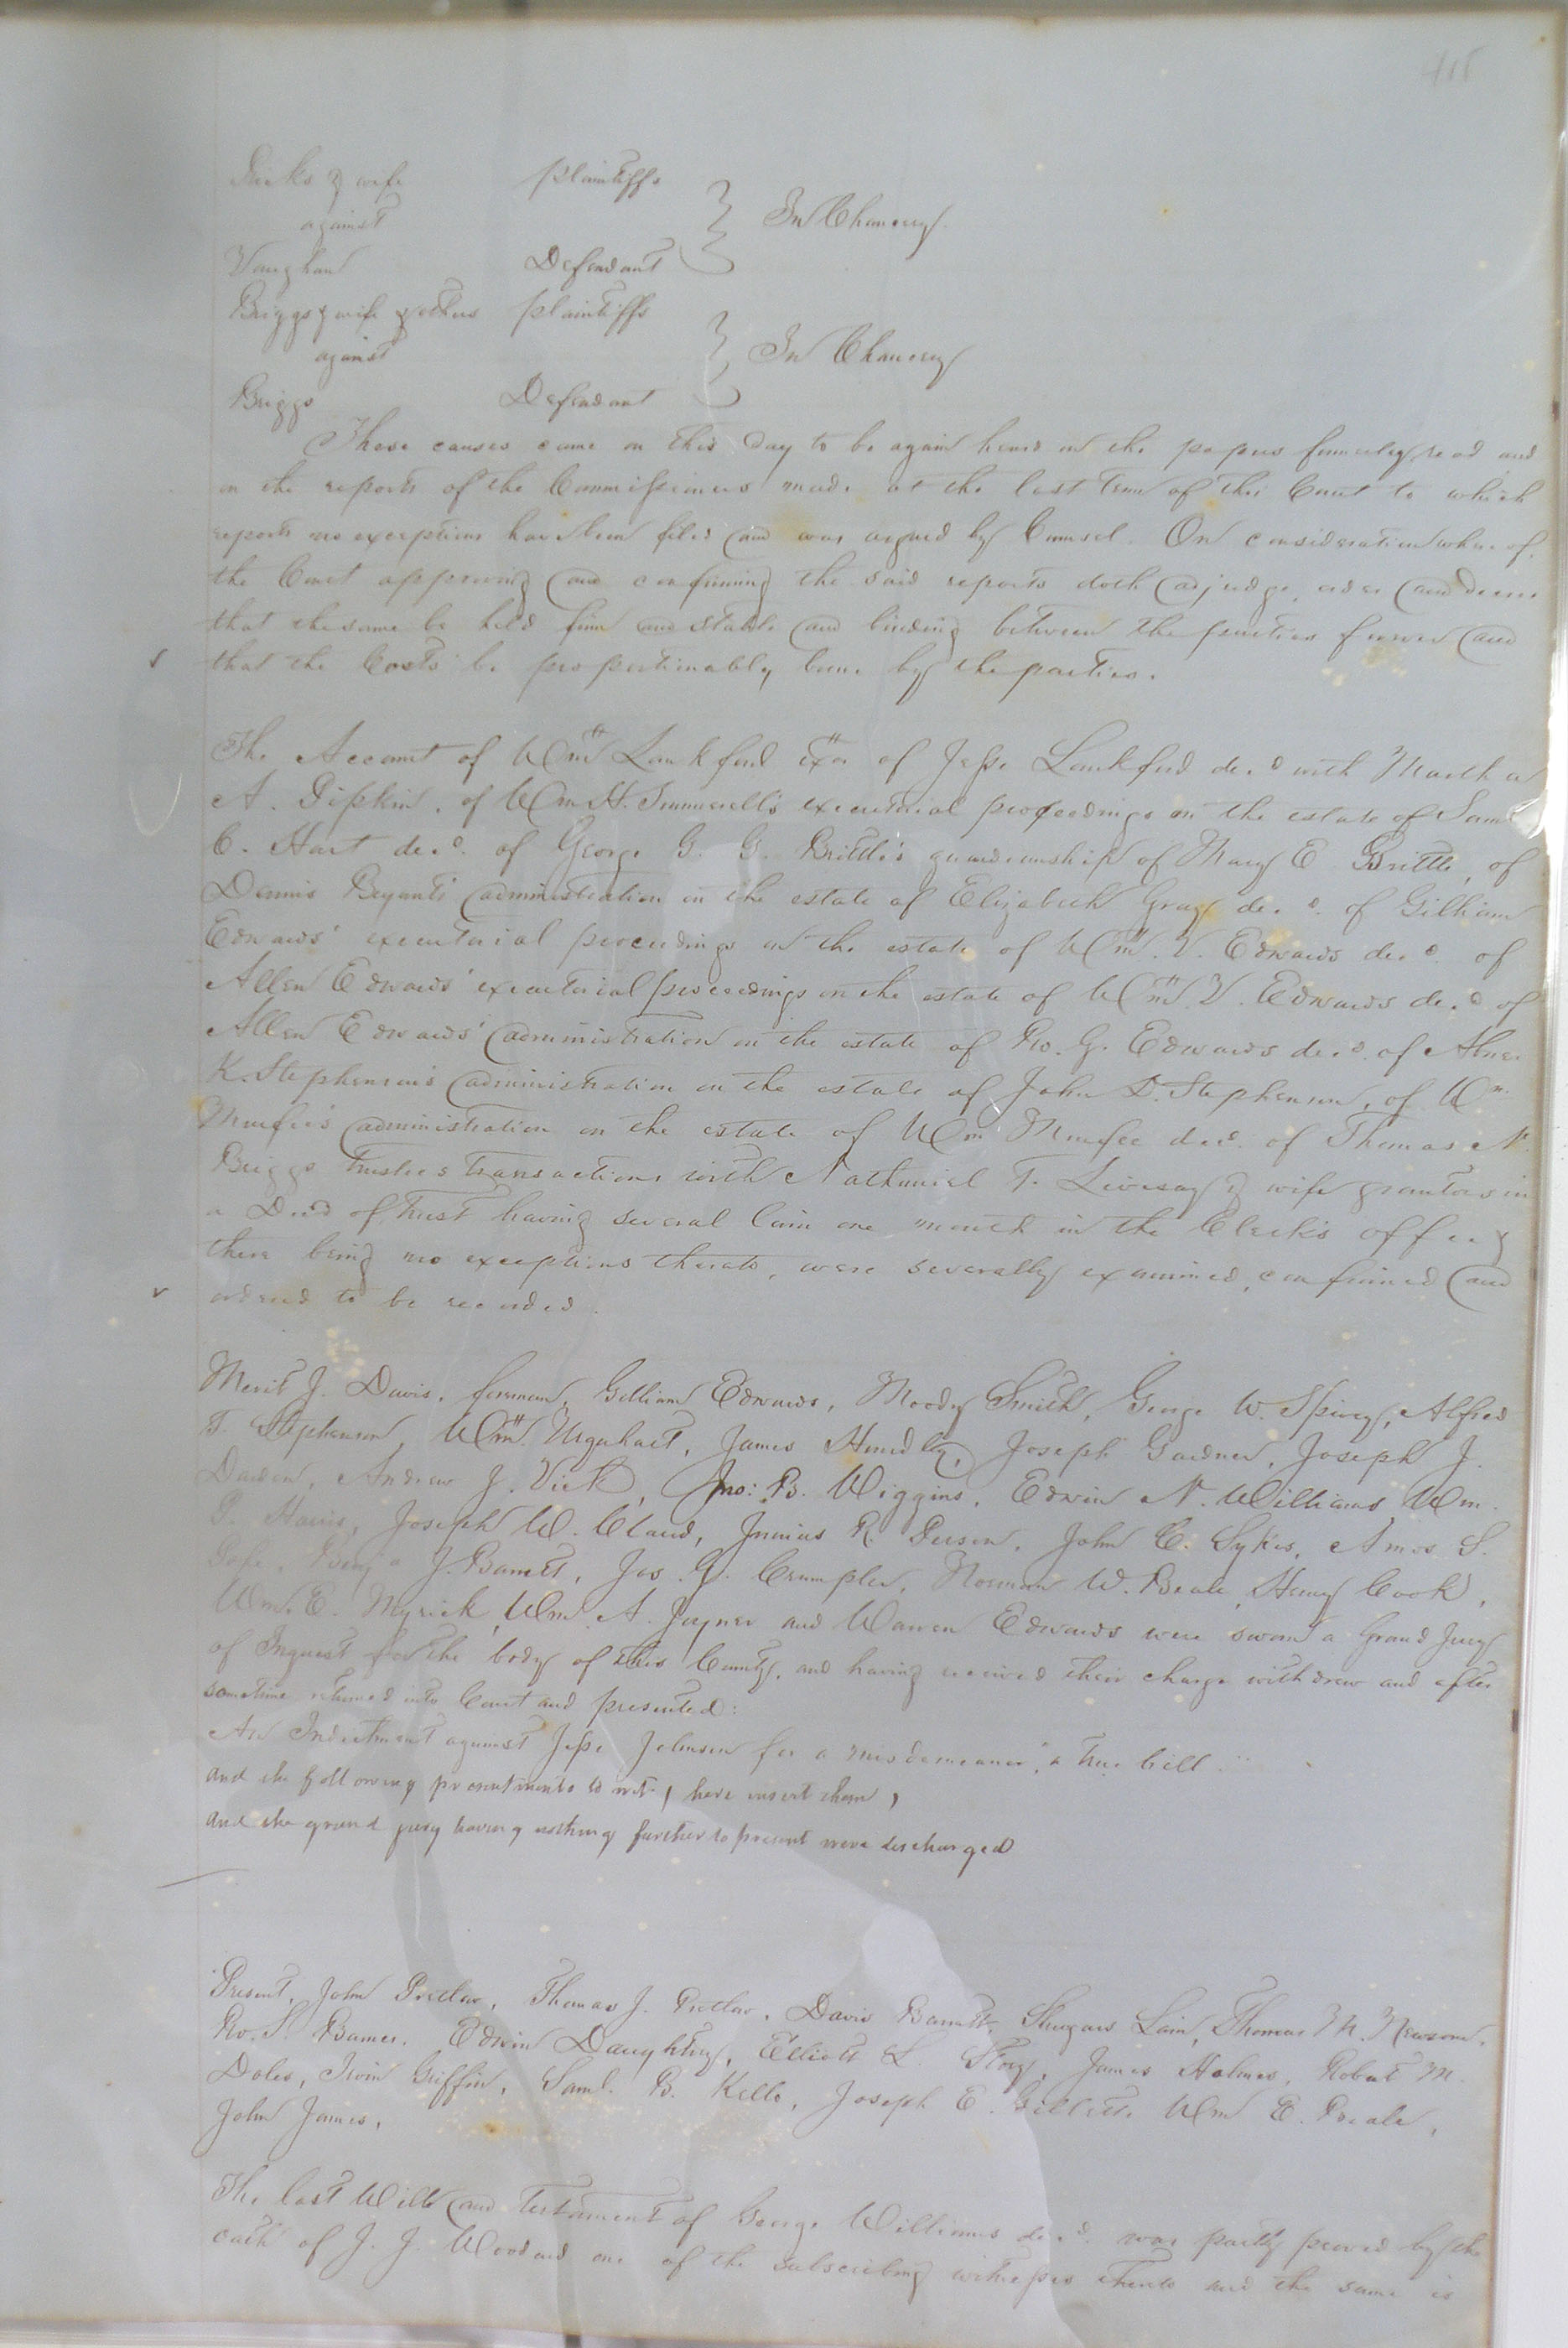 415
Ricks & wife plaintiffs
against In Chancery.
Vaughan Defendant
Briggs & wife & others plaintiffs
against In Chancery
Briggs Defendant
These causes came on this day to be again heard on the papers formerly read and
on the reports of the Commissioners made at the last term of this Court to which
reports no exceptions have been filed and was argued by Counsel. On consideration whereof
the Court approving and confirming the said reports doth adjudge, order and decree
that the same be held firm and stable and binding between the parties forever and
that the Costs be proportionably borne by the parties.
The Account of Wm Lankford exor of Jesse Lankford decd with Martha
A. Pipkin, of Wm H. Summerell's executorial proceedings on the estate of Saml
C. Hart decd. of George G. G. Brittle's guardianship of Mary E. Brittle, of
Dennis Bryant's administration on the estate of Elizabeth Gray decd. of Gilliam
Edwards' executorial proceedings on the estate of Wm. V. Edwards decd. of
Allen Edwards' executorial proceedings on the estate of Wm V. Edwards decd of
Allen Edwards' administration on the estate of Ro. G. Edwards decd. of Abner
K. Stephenson's administration on the estate of John D. Stephenson, of Wm.
Murfee's administration on the estate of Wm Murfee decd. of Thomas N.
Briggs trustees transactions with Nathaniel T. Livesay & wife grantors in
a Deed of Trust having several lain one month in the Clerk's office &
there being no exceptions thereto, were severally examined, confirmed and
ordered to be recorded.
Merit J. Davis, foreman, Gilliam Edwards, Moody Smith, George W. Spivey, Alfred
T. Stephenson, Wm. Urquhart, James Hundley, Joseph Gardner, Joseph J.
Darden, Andrew J. Vick, Jno: B. Wiggins, Edwin N. Williams, Wm.
P. Harris, Joseph W. Claud, Junius R. Person, John C. Sykes, Amos S.
Benja J. Barrett, Jas. G. Crumpler, Norman W. Beale, Henry Cook,
Wm. E. Myrick, Wm. A. Joyner and Warren Edwards were sworn a Grand Jury
of Inquest for the body of this County, and having received their charge withdrew and after
sometime returned into Court and presented:
An Indictment against Jesse Johnson for a misdemeanor, "a true bill"
and the following presentments to wit, (here insert them)
and the grand jury having nothing further to present were discharged
Present, John Pretlow, Thomas J. Pretlow, Davis Barrett, Shugars Lain, Thomas M. Newsom,
Ro. S. Barnes, Edwin Daughtrey, Elliott L. Story, James Holmes, Robert M.
Doles, Irvin Griffin, Saml. B. Kello, Joseph E. Gillette, Wm E. Beale,
John James,
The last Will and Testament of George Williams decd. was partly proved by the
oath of J. J. Woodard one of the subscribing witnesses thereto and the same is